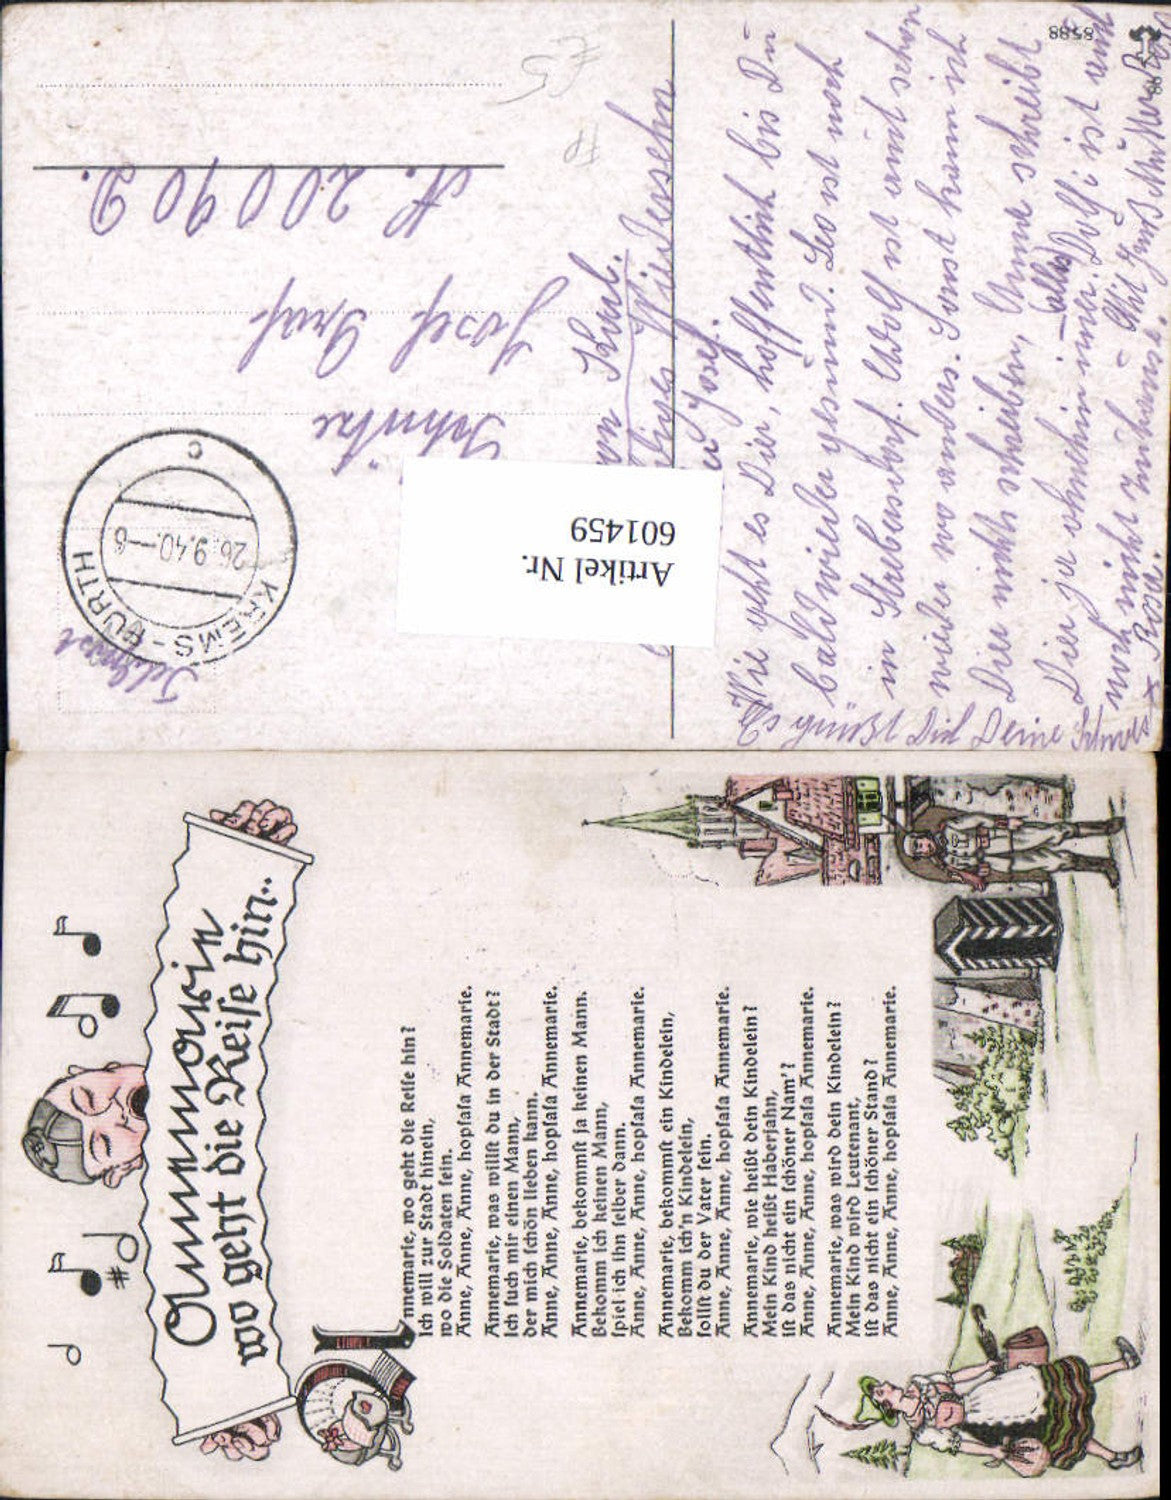 8588
Feldpost
KREMS-FURTH
26.9.40.--8
c
Schütze
Josef Graf
N. 20090 D.
Artikel Nr.
601459
Wie geht es Dir, hoffentlich bis Du
bald wieder gesund. Leo ist noch
in Strebersdorf. Wolf ist auch schon
wieder wo anders. Sonst kann ich
Dir nicht schreiben, Anna schreibt
Dir ja ohnehin immer. (alles) Dolfi ist auch
noch nicht zuhause. Mit Gruß Mutter
Es grüßt Dich Deine Schwester
Rosa.
Wiedersehn
Josef.
Annemarie
wo geht die Reise hin..
Annemarie, wo geht die Reise hin?
Ich will zur Stadt hinein,
wo die Soldaten sein.
Anne, Anne, Anne, hopsasa Annemarie.
Annemarie, was willst du in der Stadt?
Ich such mir einen Mann,
der mich schön lieben kann.
Anne, Anne, Anne, hopsasa Annemarie.
Annemarie, bekommst ja keinen Mann.
Bekomm ich keinen Mann,
spiel ich ihn selber dann.
Anne, Anne, Anne, hopsasa Annemarie.
Annemarie, bekommst ein Kindelein,
Bekomm ich'n Kindelein,
sollst du der Vater sein.
Anne, Anne, Anne, hopsasa Annemarie.
Annemarie, wie heißt dein Kindelein?
Mein Kind heißt Haberjahn,
ist das nicht ein schöner Nam'?
Anne, Anne, Anne, hopsasa Annemarie.
Annemarie, was wird dein Kindelein?
Mein Kind wird Leutenant,
ist das nicht ein schöner Stand?
Anne, Anne, Anne, hopsasa Annemarie.